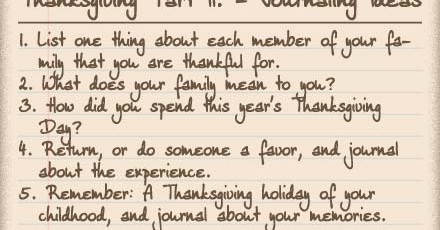 Thanksgiving Part II. - Journaling Ideas
1. List one thing about each member of your fa-
mily that you are thankful for.
2. What does your family mean to you?
3. How did you spend this year's Thanksgiving
Day?
4. Return, or do someone a favor, and journal
about the experience.
5. Remember: A Thanksgiving holiday of your
childhood, and journal about your memories.